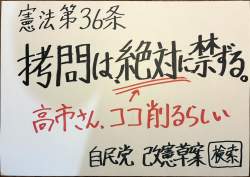 憲法第36条
拷問は、絶対に禁ずる。
高市さん、ココ削るらしい
自民党 改憲草案 検索